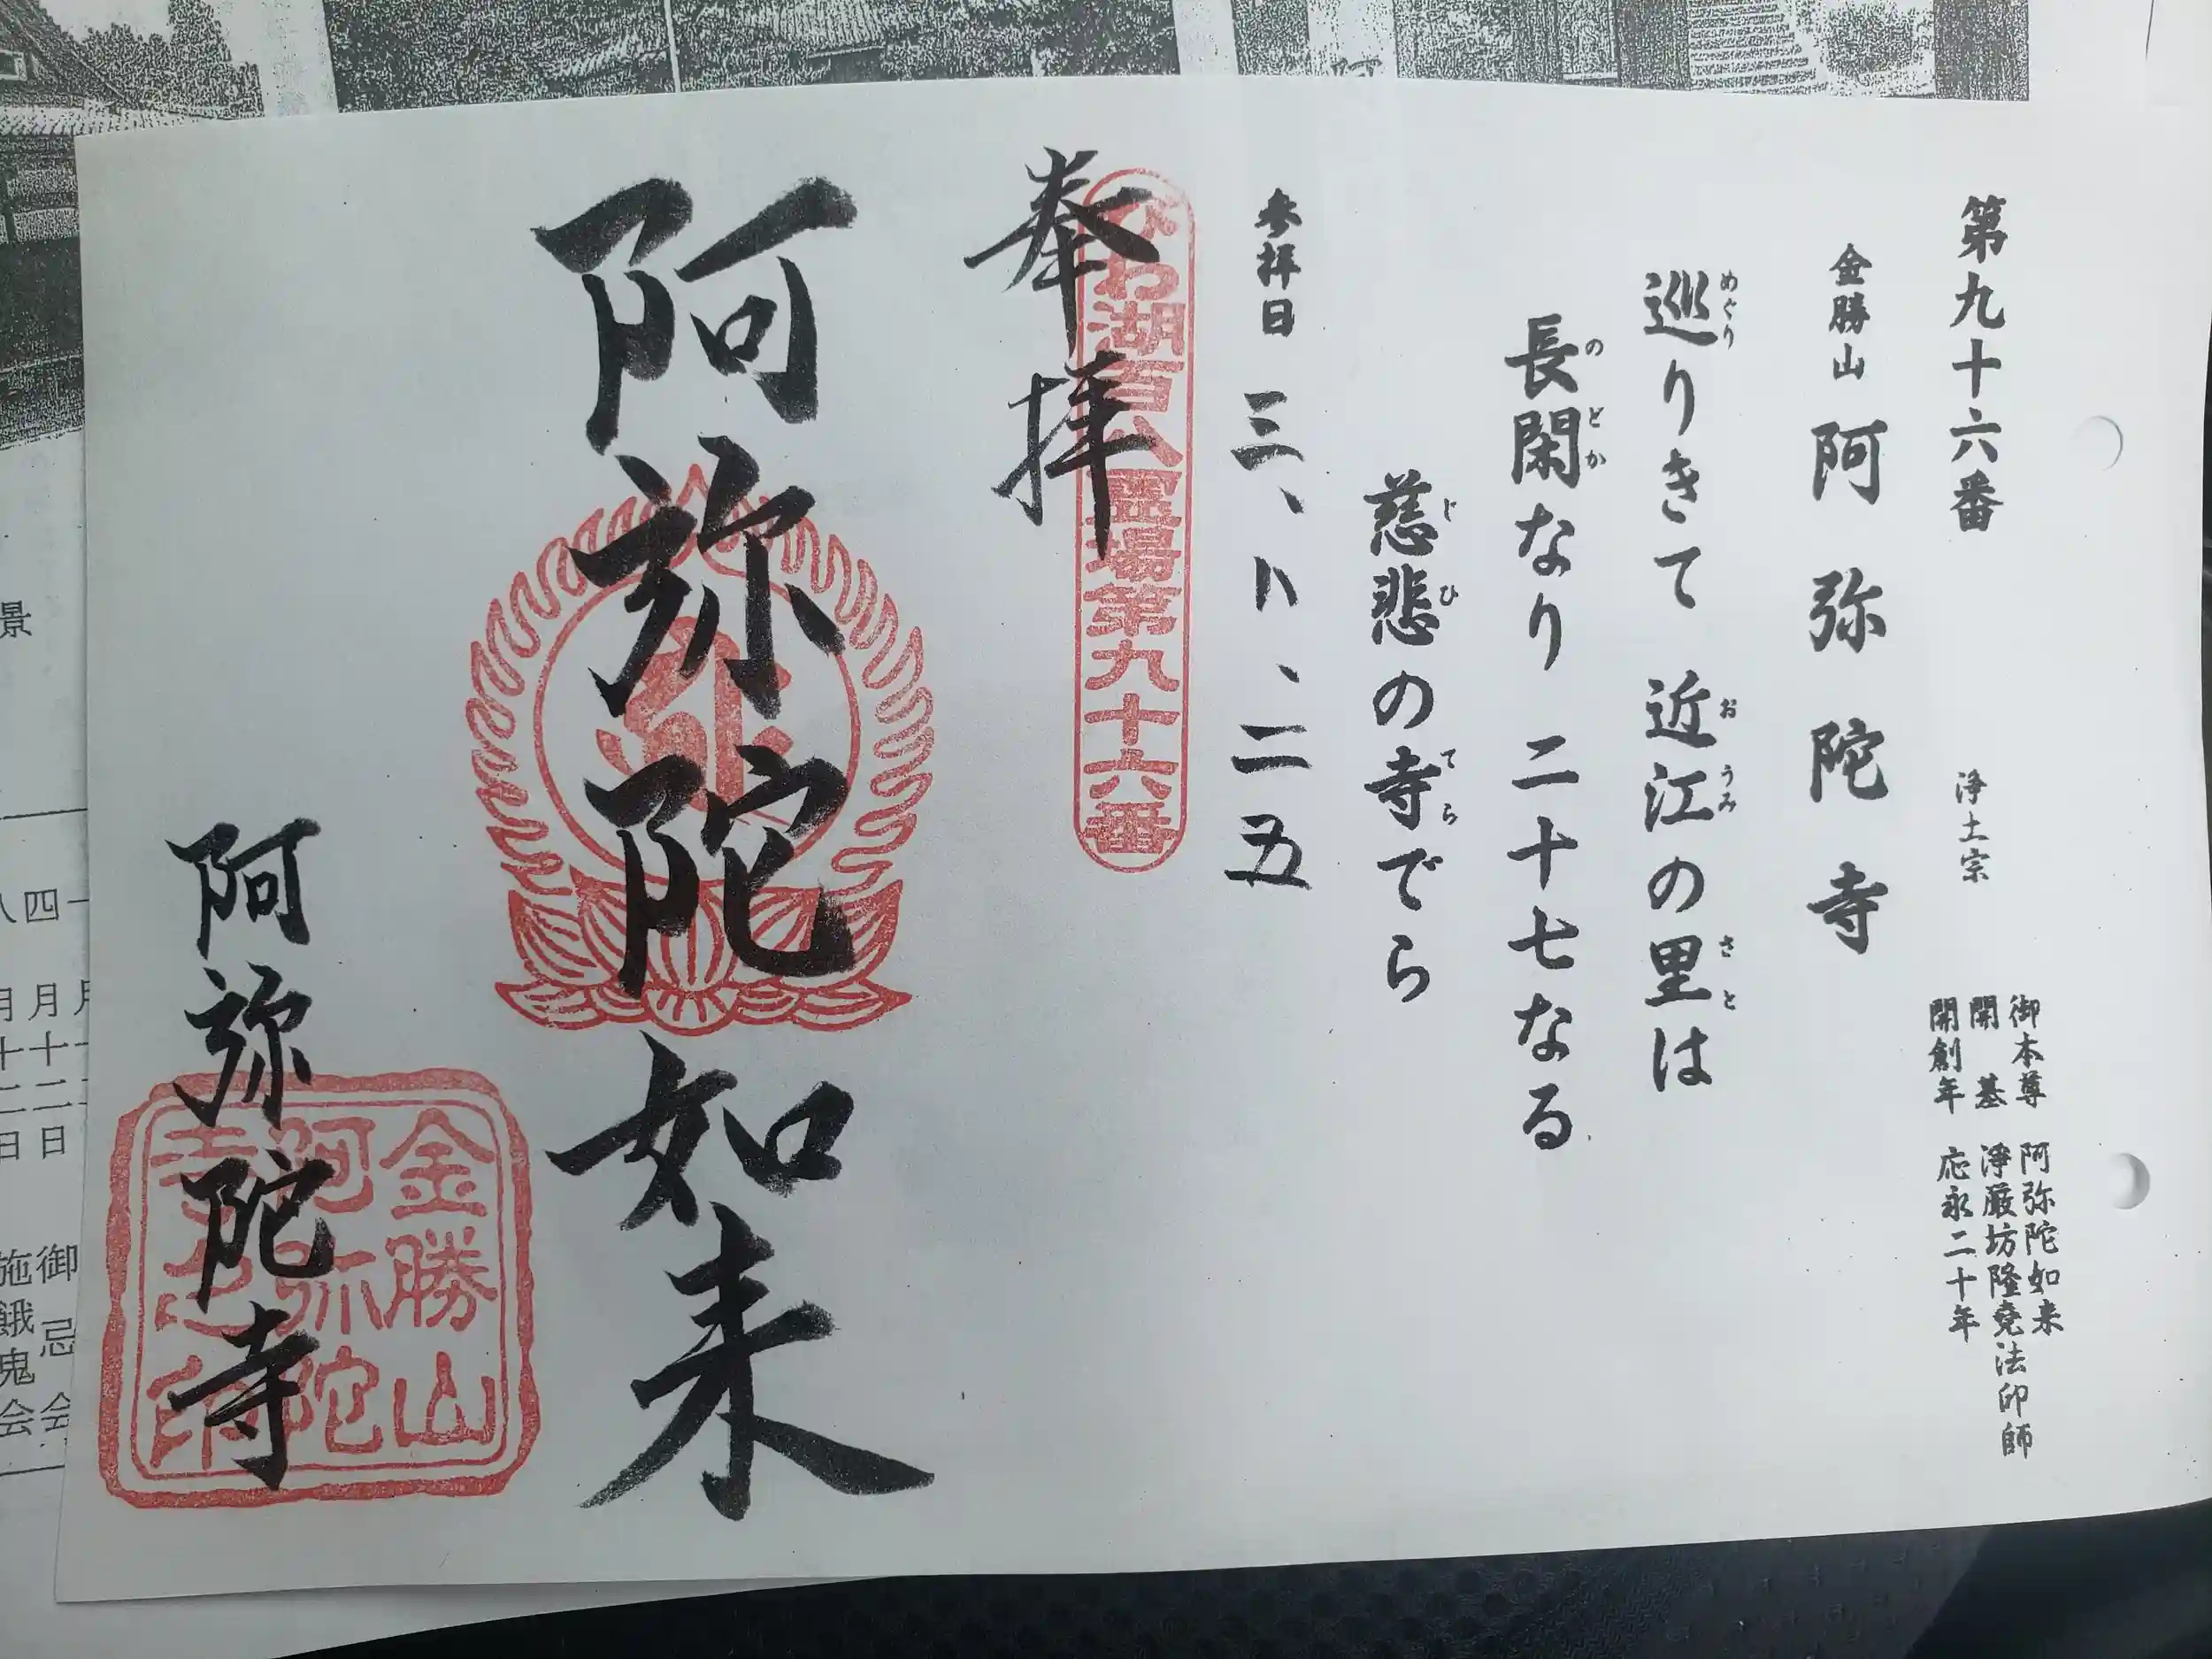 第九十六番
浄土宗
御本尊 阿弥陀如来
開基 浄厳坊隆堯法印師
開創年 応永二十年
金勝山 阿弥陀寺
巡りきて 近江の里は
めぐり おうみ さと
長閑なり 二十七なる
のどか
慈悲の寺でら
じひ てら
参拝日 三、八、二五
奉拝
びわ湖百八霊場第九十六番
阿弥陀如来
阿弥陀寺
金勝山
阿弥陀
景
八四一
月月
十十
二二
日日
御忌会
施餓鬼会